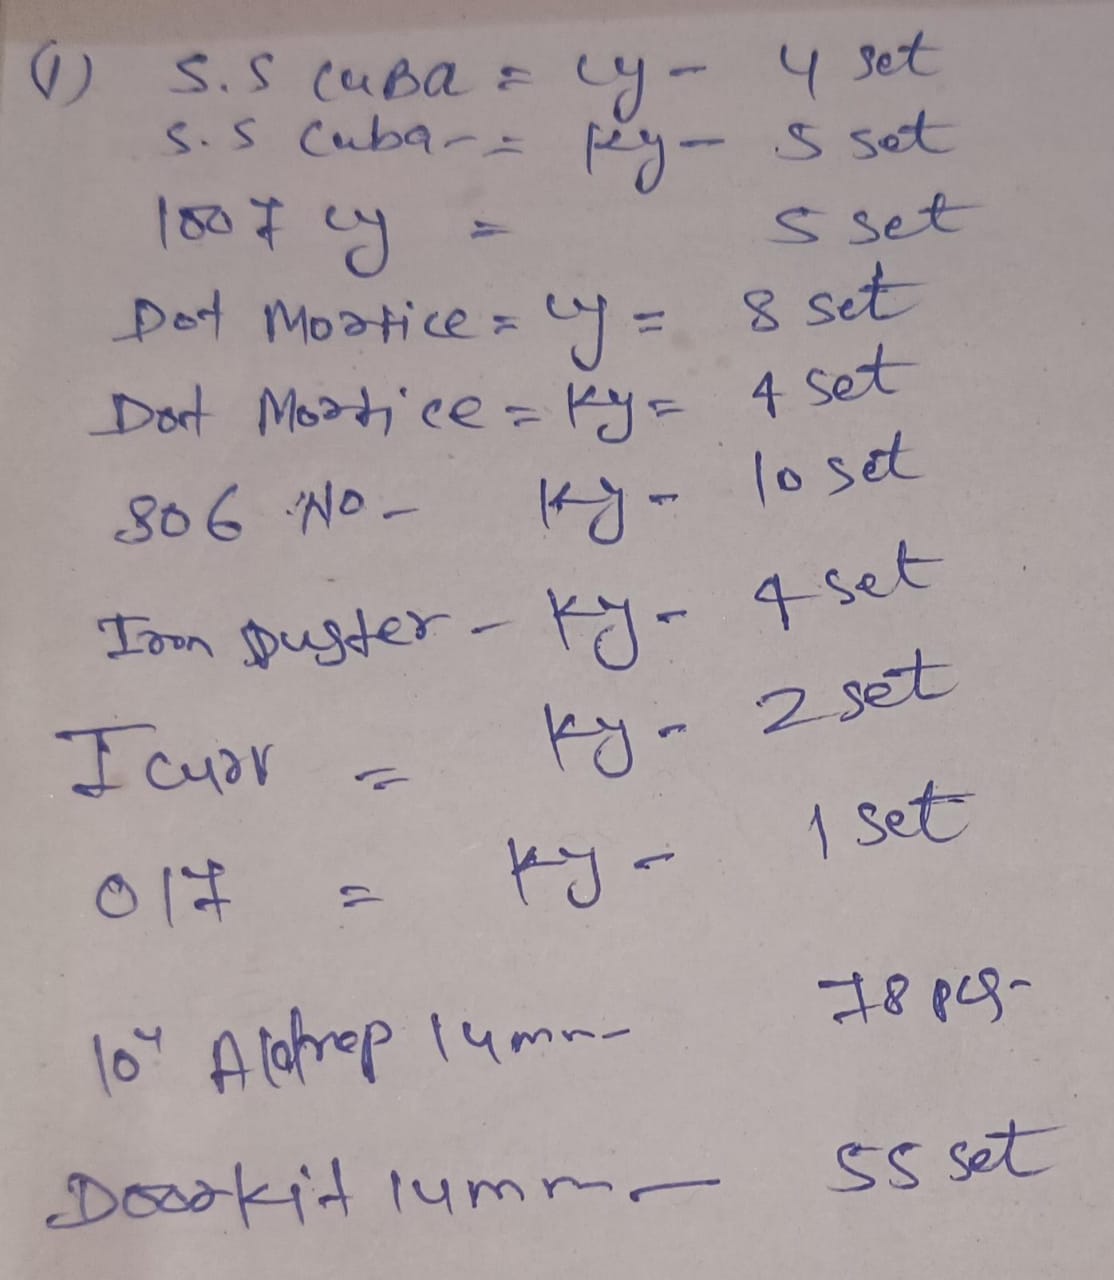 (1) S.S CUBA = cy - 4 set
S.S Cuba - = Ky - 5 set
1007 cy = 5 set
Dot Mortice = cy = 8 set
Dot Mortice = Ky = 4 set
806 NO - Ky - 10 set
Iron Duster - Ky - 4 set
I curv = Ky - 2 set
017 = Ky - 1 set
10" Aldrep 14mm - 78 pcs -
Doorkit 14mm - 55 set